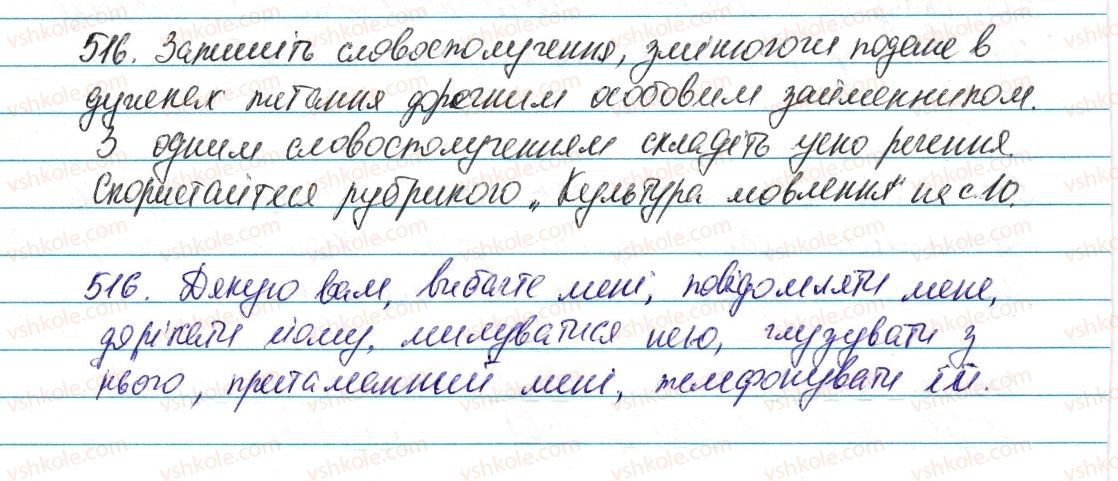 516. Запишіть словосполучення, змінюючи подане в
дужках питання доречним особовим займенником.
З одним словосполученням складіть усно речення.
Скористайтеся рубрикою „Культура мовлення" на с.10.
516. Дякую вам, вибачте мені, повідомляти мене,
дорікати йому, милуватися нею, глузувати з
нього, притаманний мені, телефонувати їй.